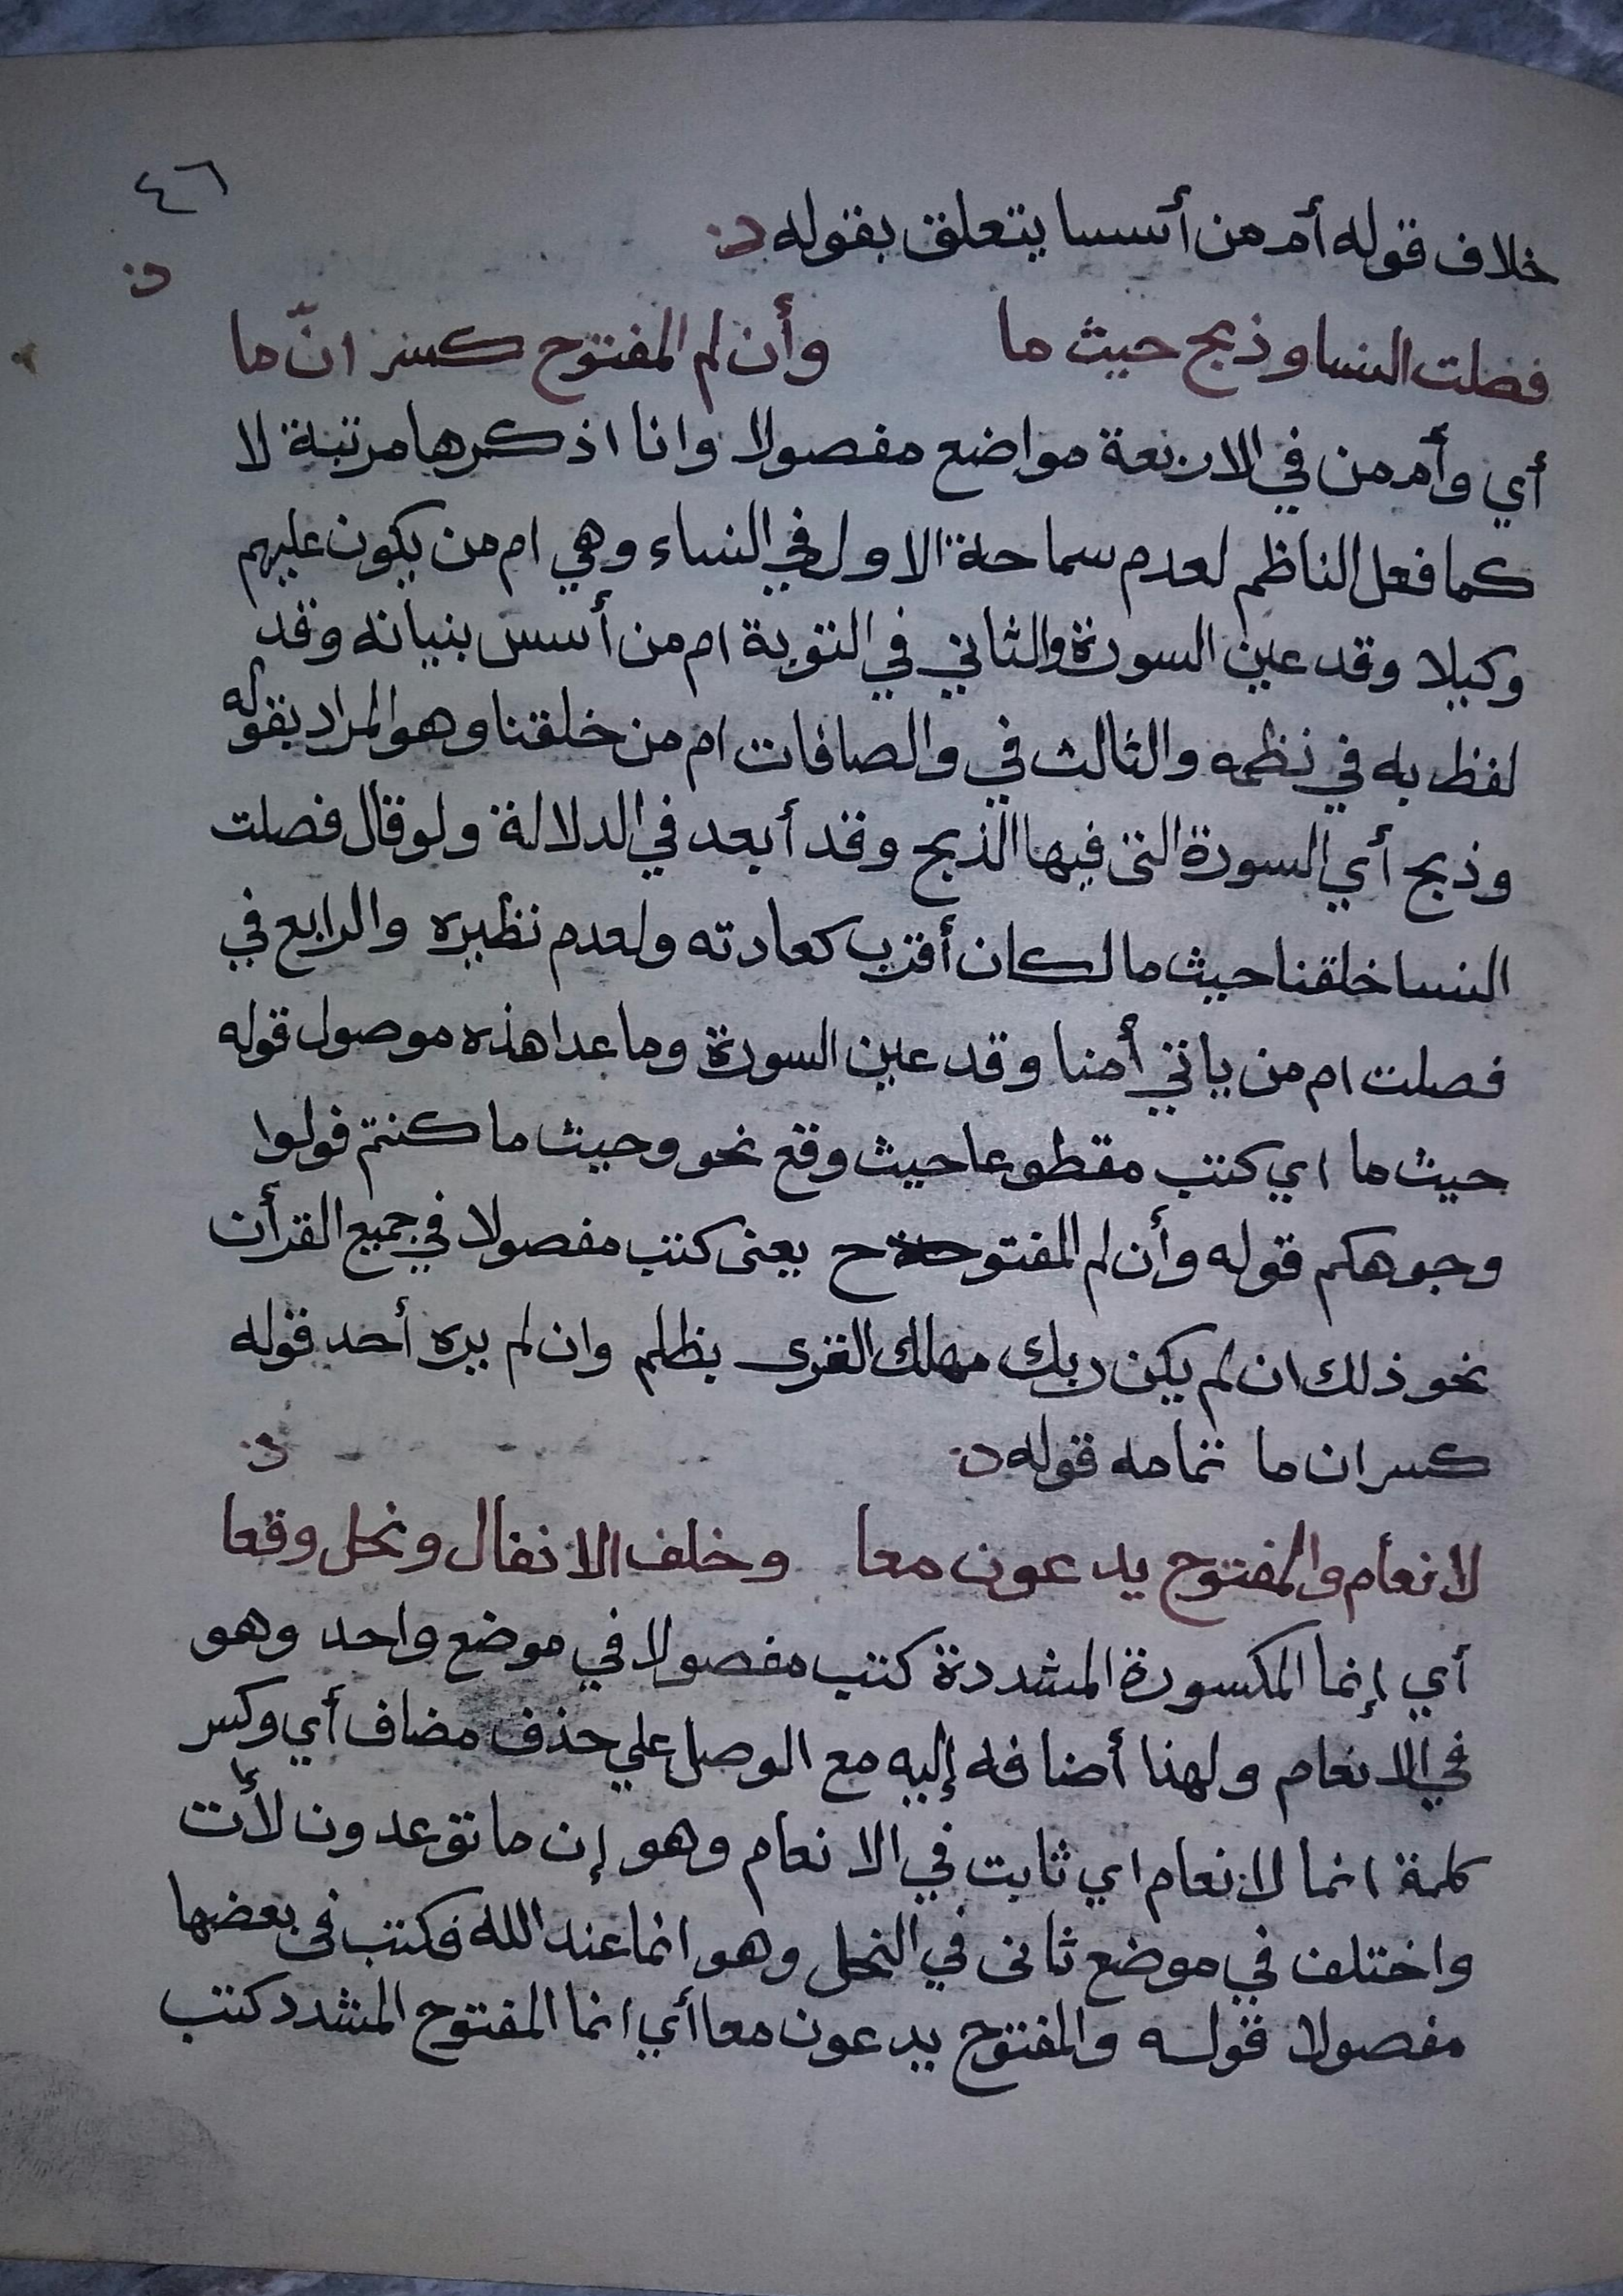 ٤٦
خلاف قوله أم من أسسا يتعلق بقوله
فصلت النسا وذبح حيث ما وأن لم المفتوح كسر انّ ما
أي وأم من في الاربعة مواضع مفصولا وانا اذكرها مرتبة لا
كما فعل الناظم لعدم سماحة الاول في النساء وهي ام من يكون عليهم
وكيلا وقد عين السورة والثاني في التوبة ام من أسس بنيانه وقد
لفظ به في نظمه والثالث في والصافات ام من خلقنا وهو المراد بقوله
وذبح أي السورة التى فيها الذبح وقد أبعد في الدلالة ولو قال فصلت
النسا خلقنا حيث ما لكان أقرب كعادته ولعدم نظيره والرابع في
فصلت ام من ياتي أمنا وقد عين السورة وما عدا هذه موصول قوله
حيث ما اي كتب مقطوعا حيث وقع نحو وحيث ما كنتم فولوا
وجوهكم قوله وأن لم المفتوح يعنى كتب مفصولا في جميع القرأن
نحو ذلك ان لم يكن ربك مهلك القرى بظلم وان لم يره أحد قوله
كسر ان ما تمامه قوله
لانعام والمفتوح يدعون معا وخلف الانفال ونحل وقعا
أي إنما المكسورة المشددة كتب مفصولا في موضع واحد وهو
في الانعام ولهذا أضافه إليه مع الوصل علي حذف مضاف أي وكسر
كلمة انما لانعام اي ثابت في الانعام وهو إن ما توعدون لأت
واختلف في موضع ثانى في النحل وهو انما عند الله فكتب فى بعضها
مفصولا قوله والمفتوح يدعون معا أي انما المفتوح المشدد كتب